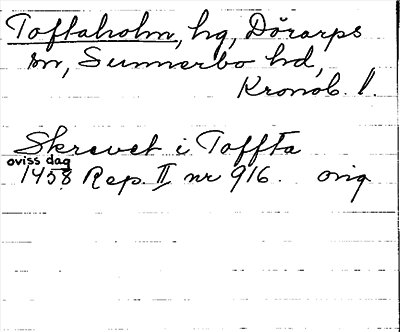 Toftaholm, hg, Dörarps
sn, Sunnerbo hd,
Kronob. l.
Skrevet i Toffta
oviss dag
1458 Rep. II nr 916. orig